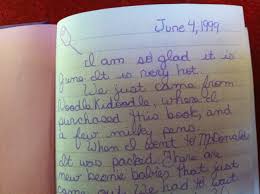 June 4, 1999
I am so glad it is
June. It is very hot.
We just came from
Noodle Kidoodle, where I
purchased this book, and
a few milky pens.
When I went to McDonalds
It was packed. There are
new beanie babies that just
came out. We had to wait